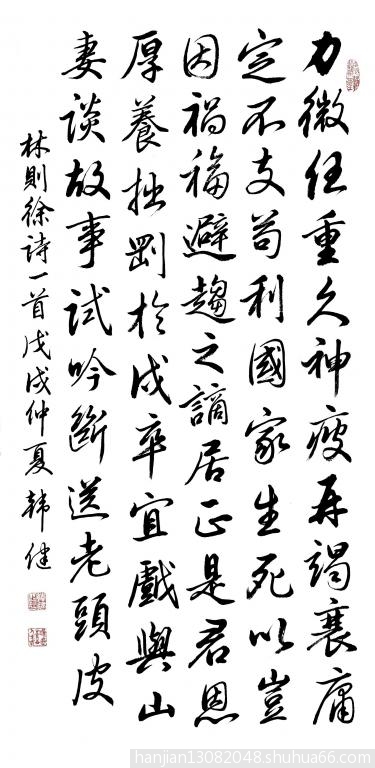 力微任重久神疲再竭衰庸
定不支苟利國家生死以豈
因禍福避趨之謫居正是君恩
厚養拙剛於戍卒宜戲與山
妻談故事試吟斷送老頭皮
林則徐诗一首戊戌仲夏韩健
hanjian13082048.shuhua66.com